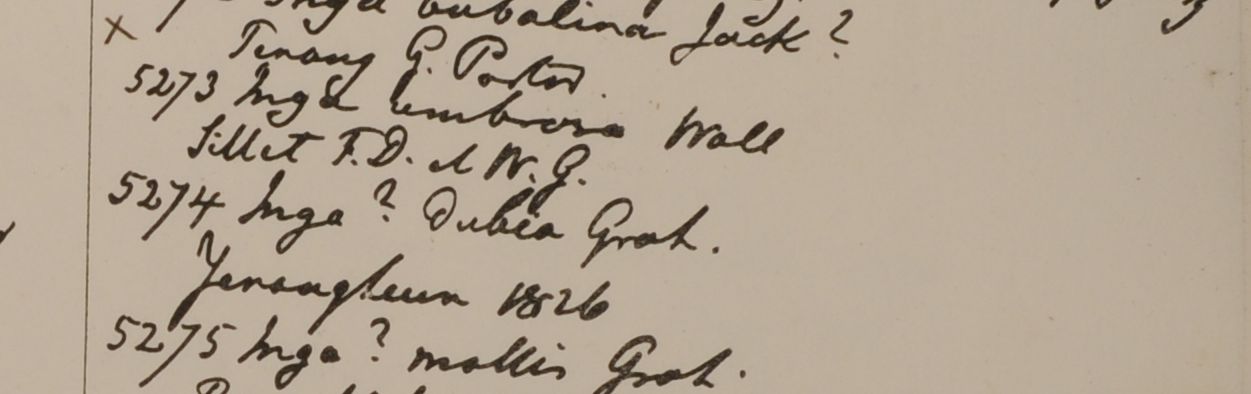 Inga bubalina Jack?
x Penang G. Porter.
5273 Inga umbrosa Wall
Sillet F.D. et W.G.
5274 Inga? dubia Grah.
Yenangheun 1826
5275 Inga? mollis Grah.